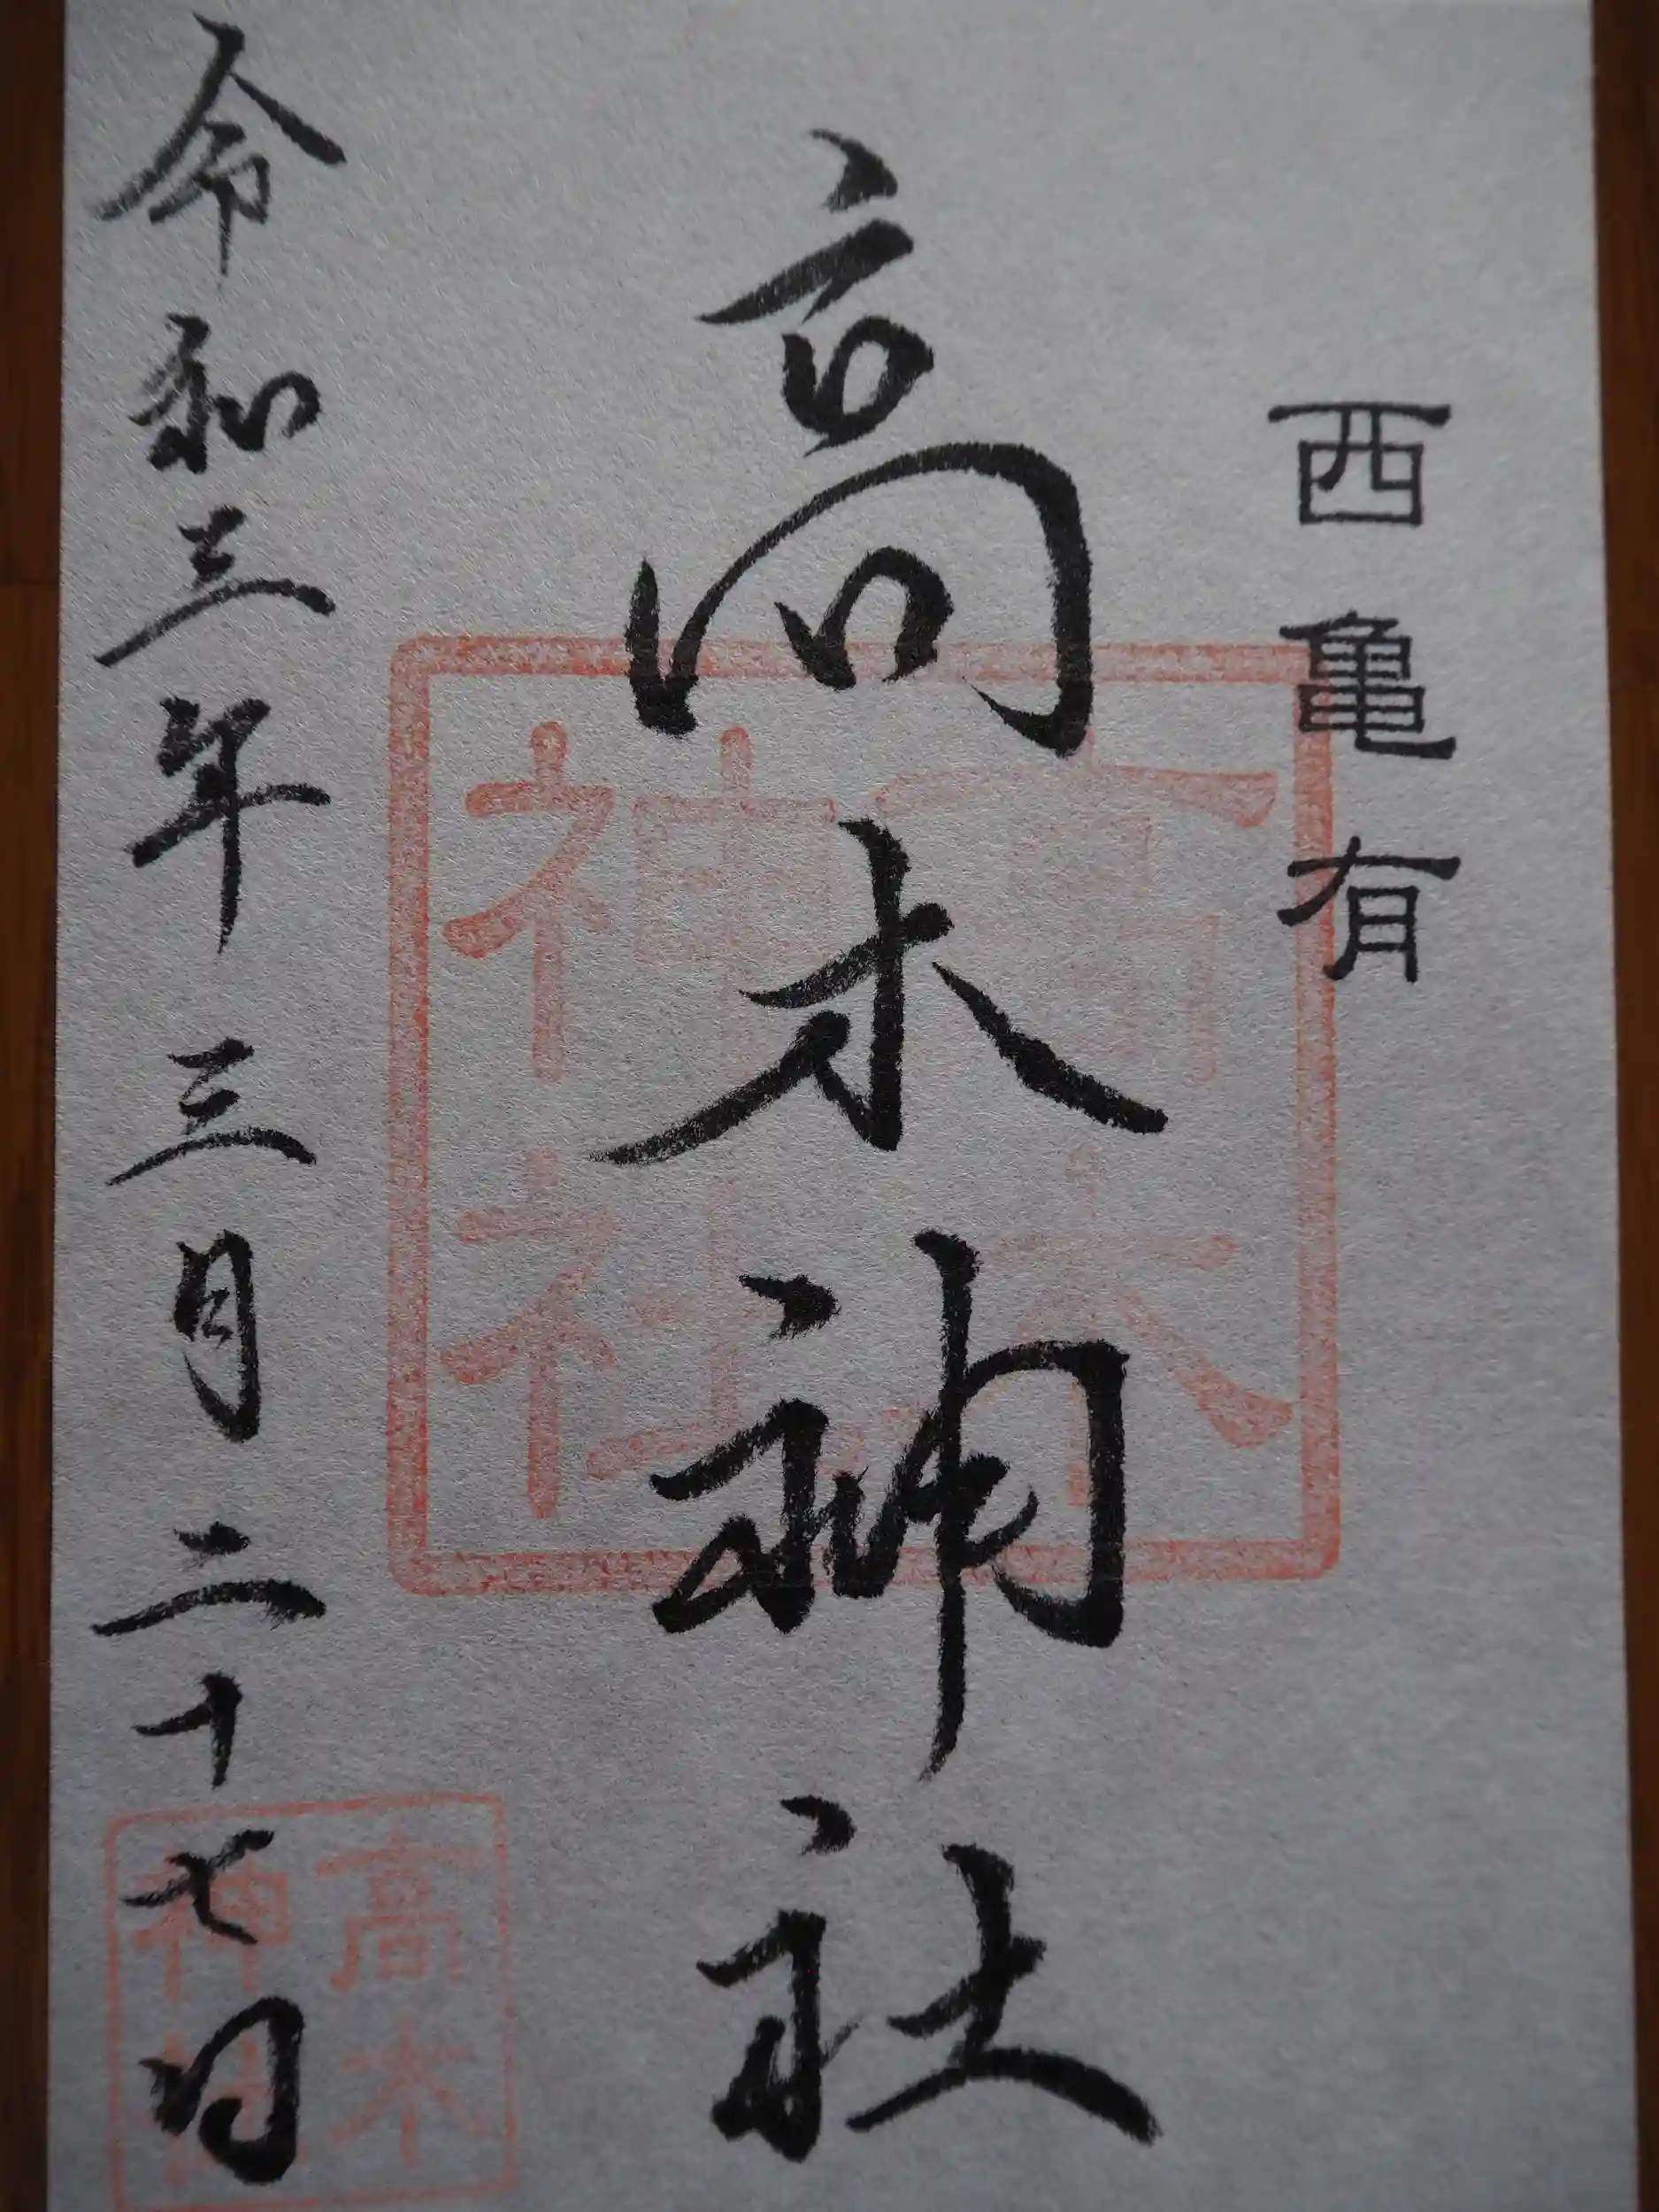 西亀有
高木神社
高木神社
令和三年三月二十七日
高木神社